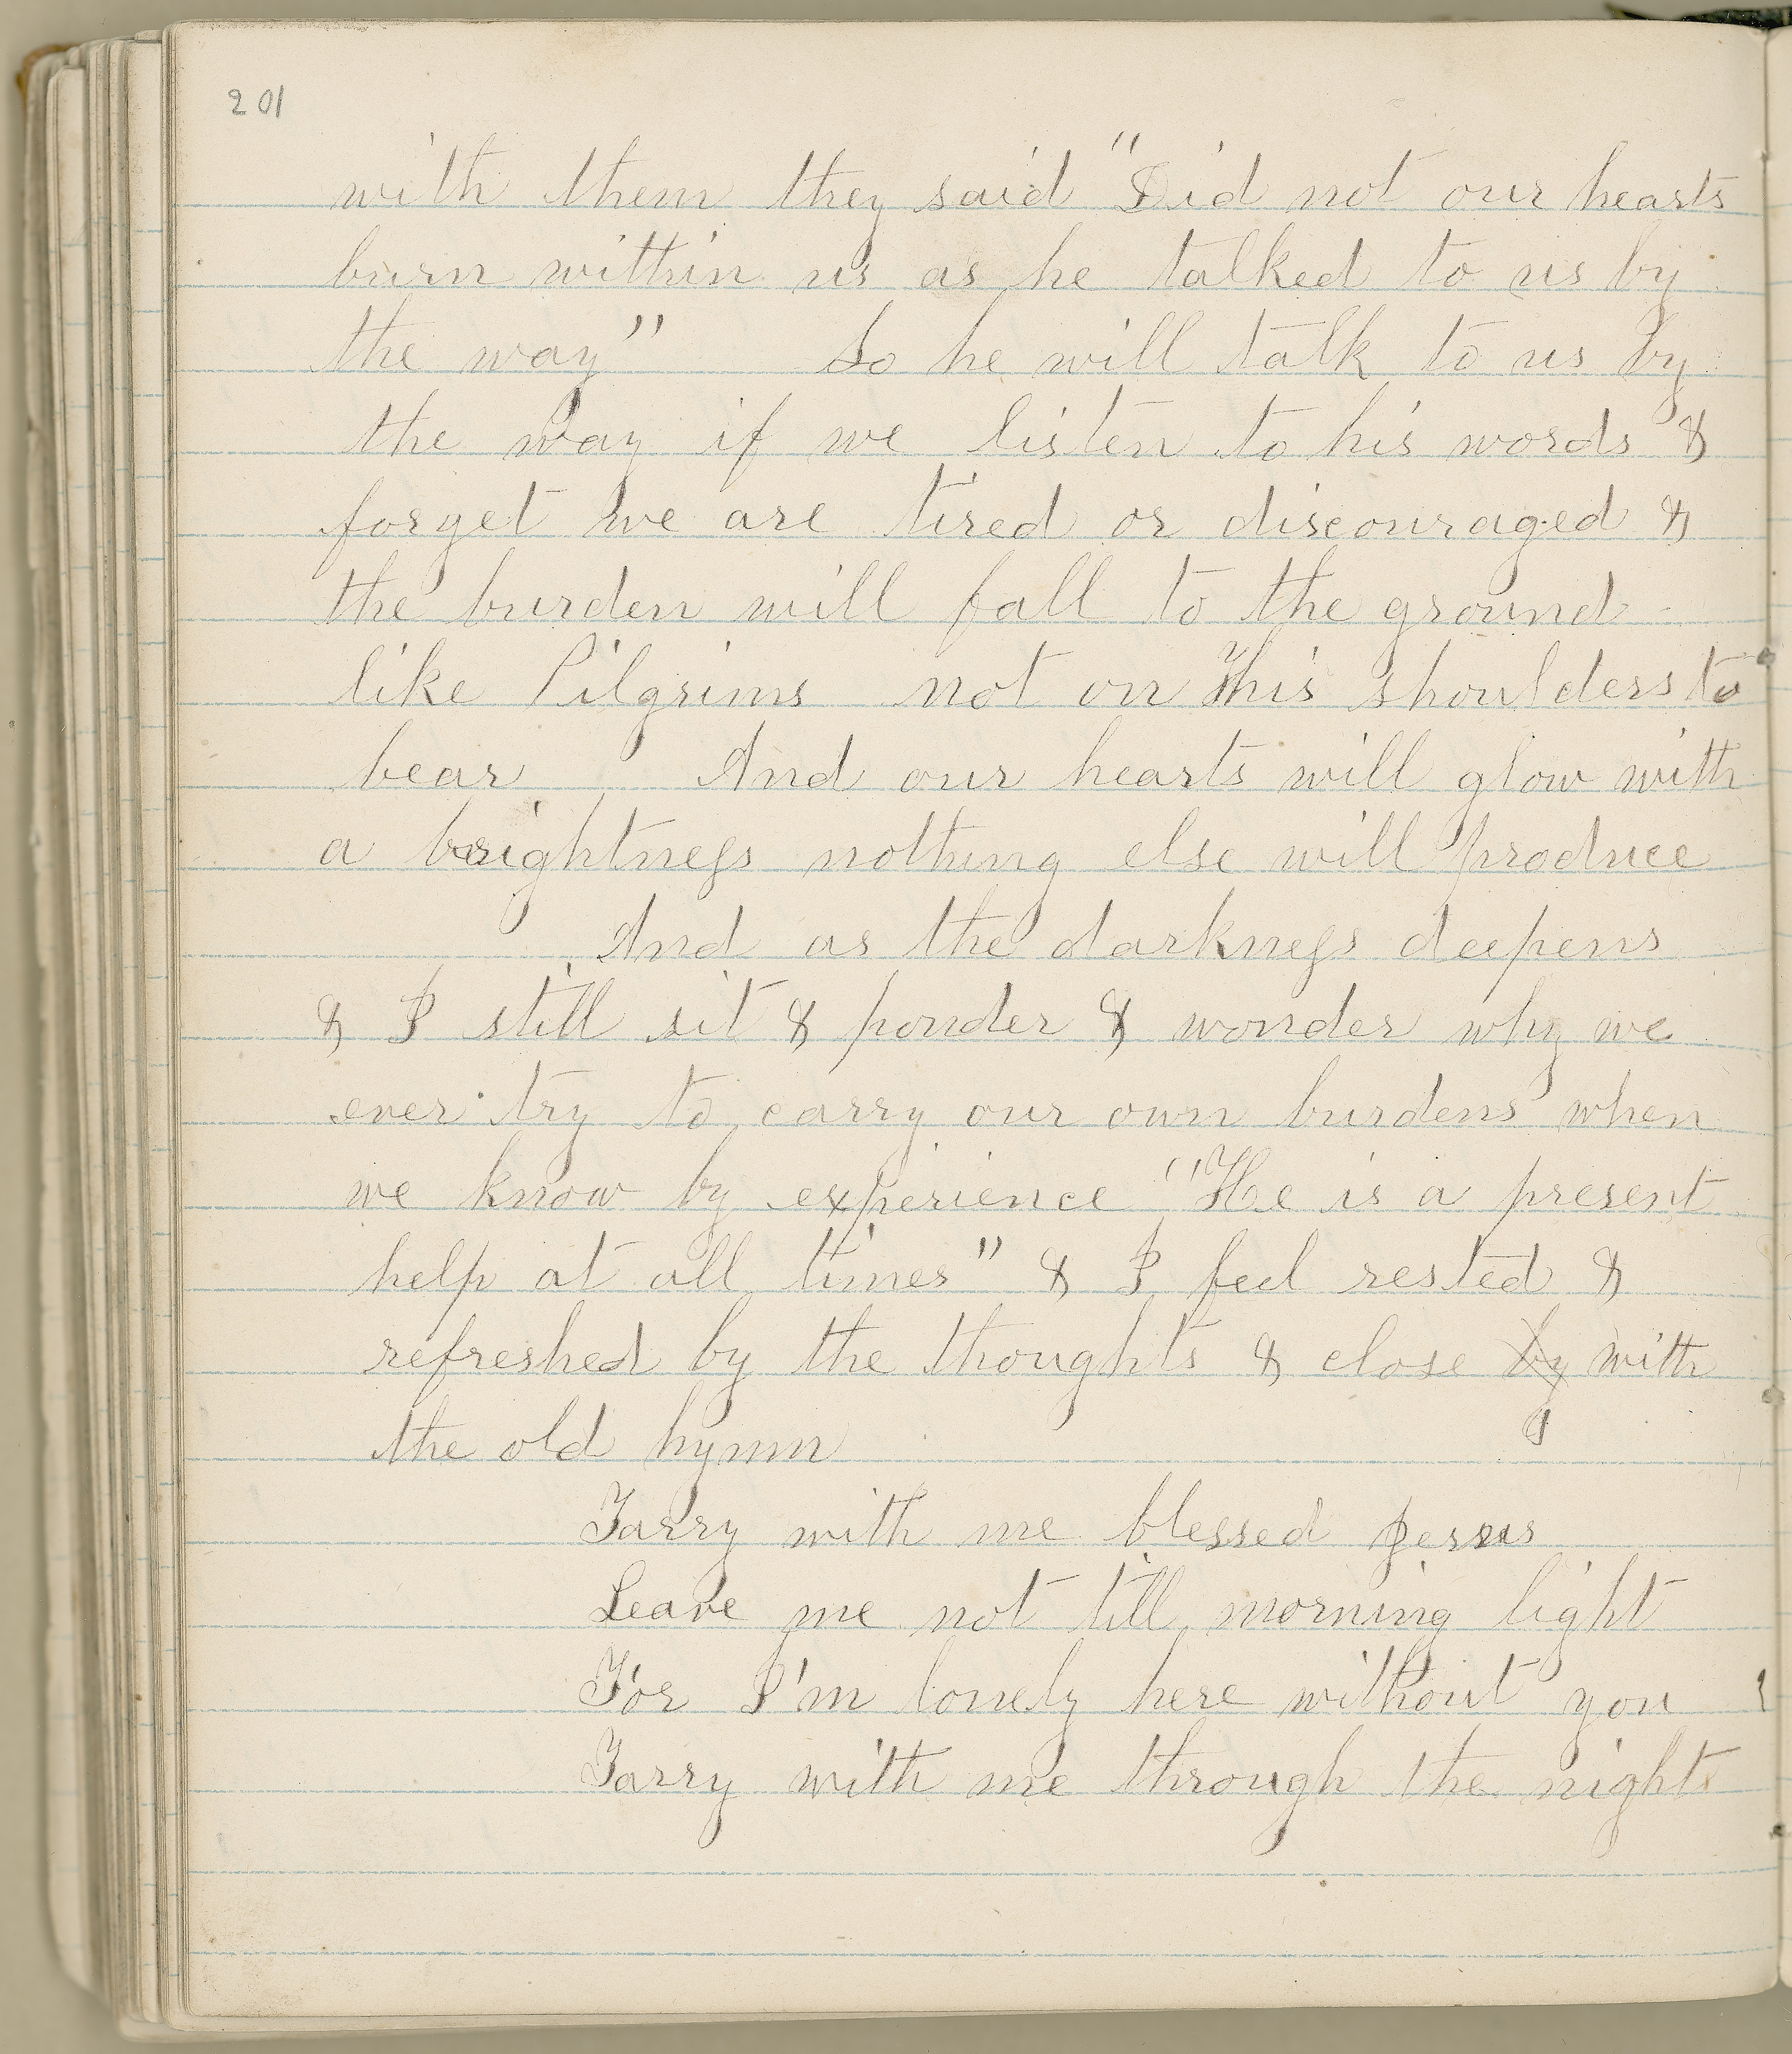 201
with them they said "Did not our hearts
burn within us as he talked to us by
the way" So he will talk to us by
the way if we listen to his words &
forget we are tired or discouraged &
the burden will fall to the ground
like Pilgrims not on His shoulders to
bear And our hearts will glow with
a brightness nothing else will produce
And as the darkness deepens
& I still sit & ponder & wonder why we
ever try to carry our own burdens when
we know by experience "He is a present
help at all times" & I feel rested &
refreshed by the thoughts & close by with
the old hymn
Tarry with me blessed Jesus
Leave me not till morning light
For I'm lonely here without you
Tarry with me through the night